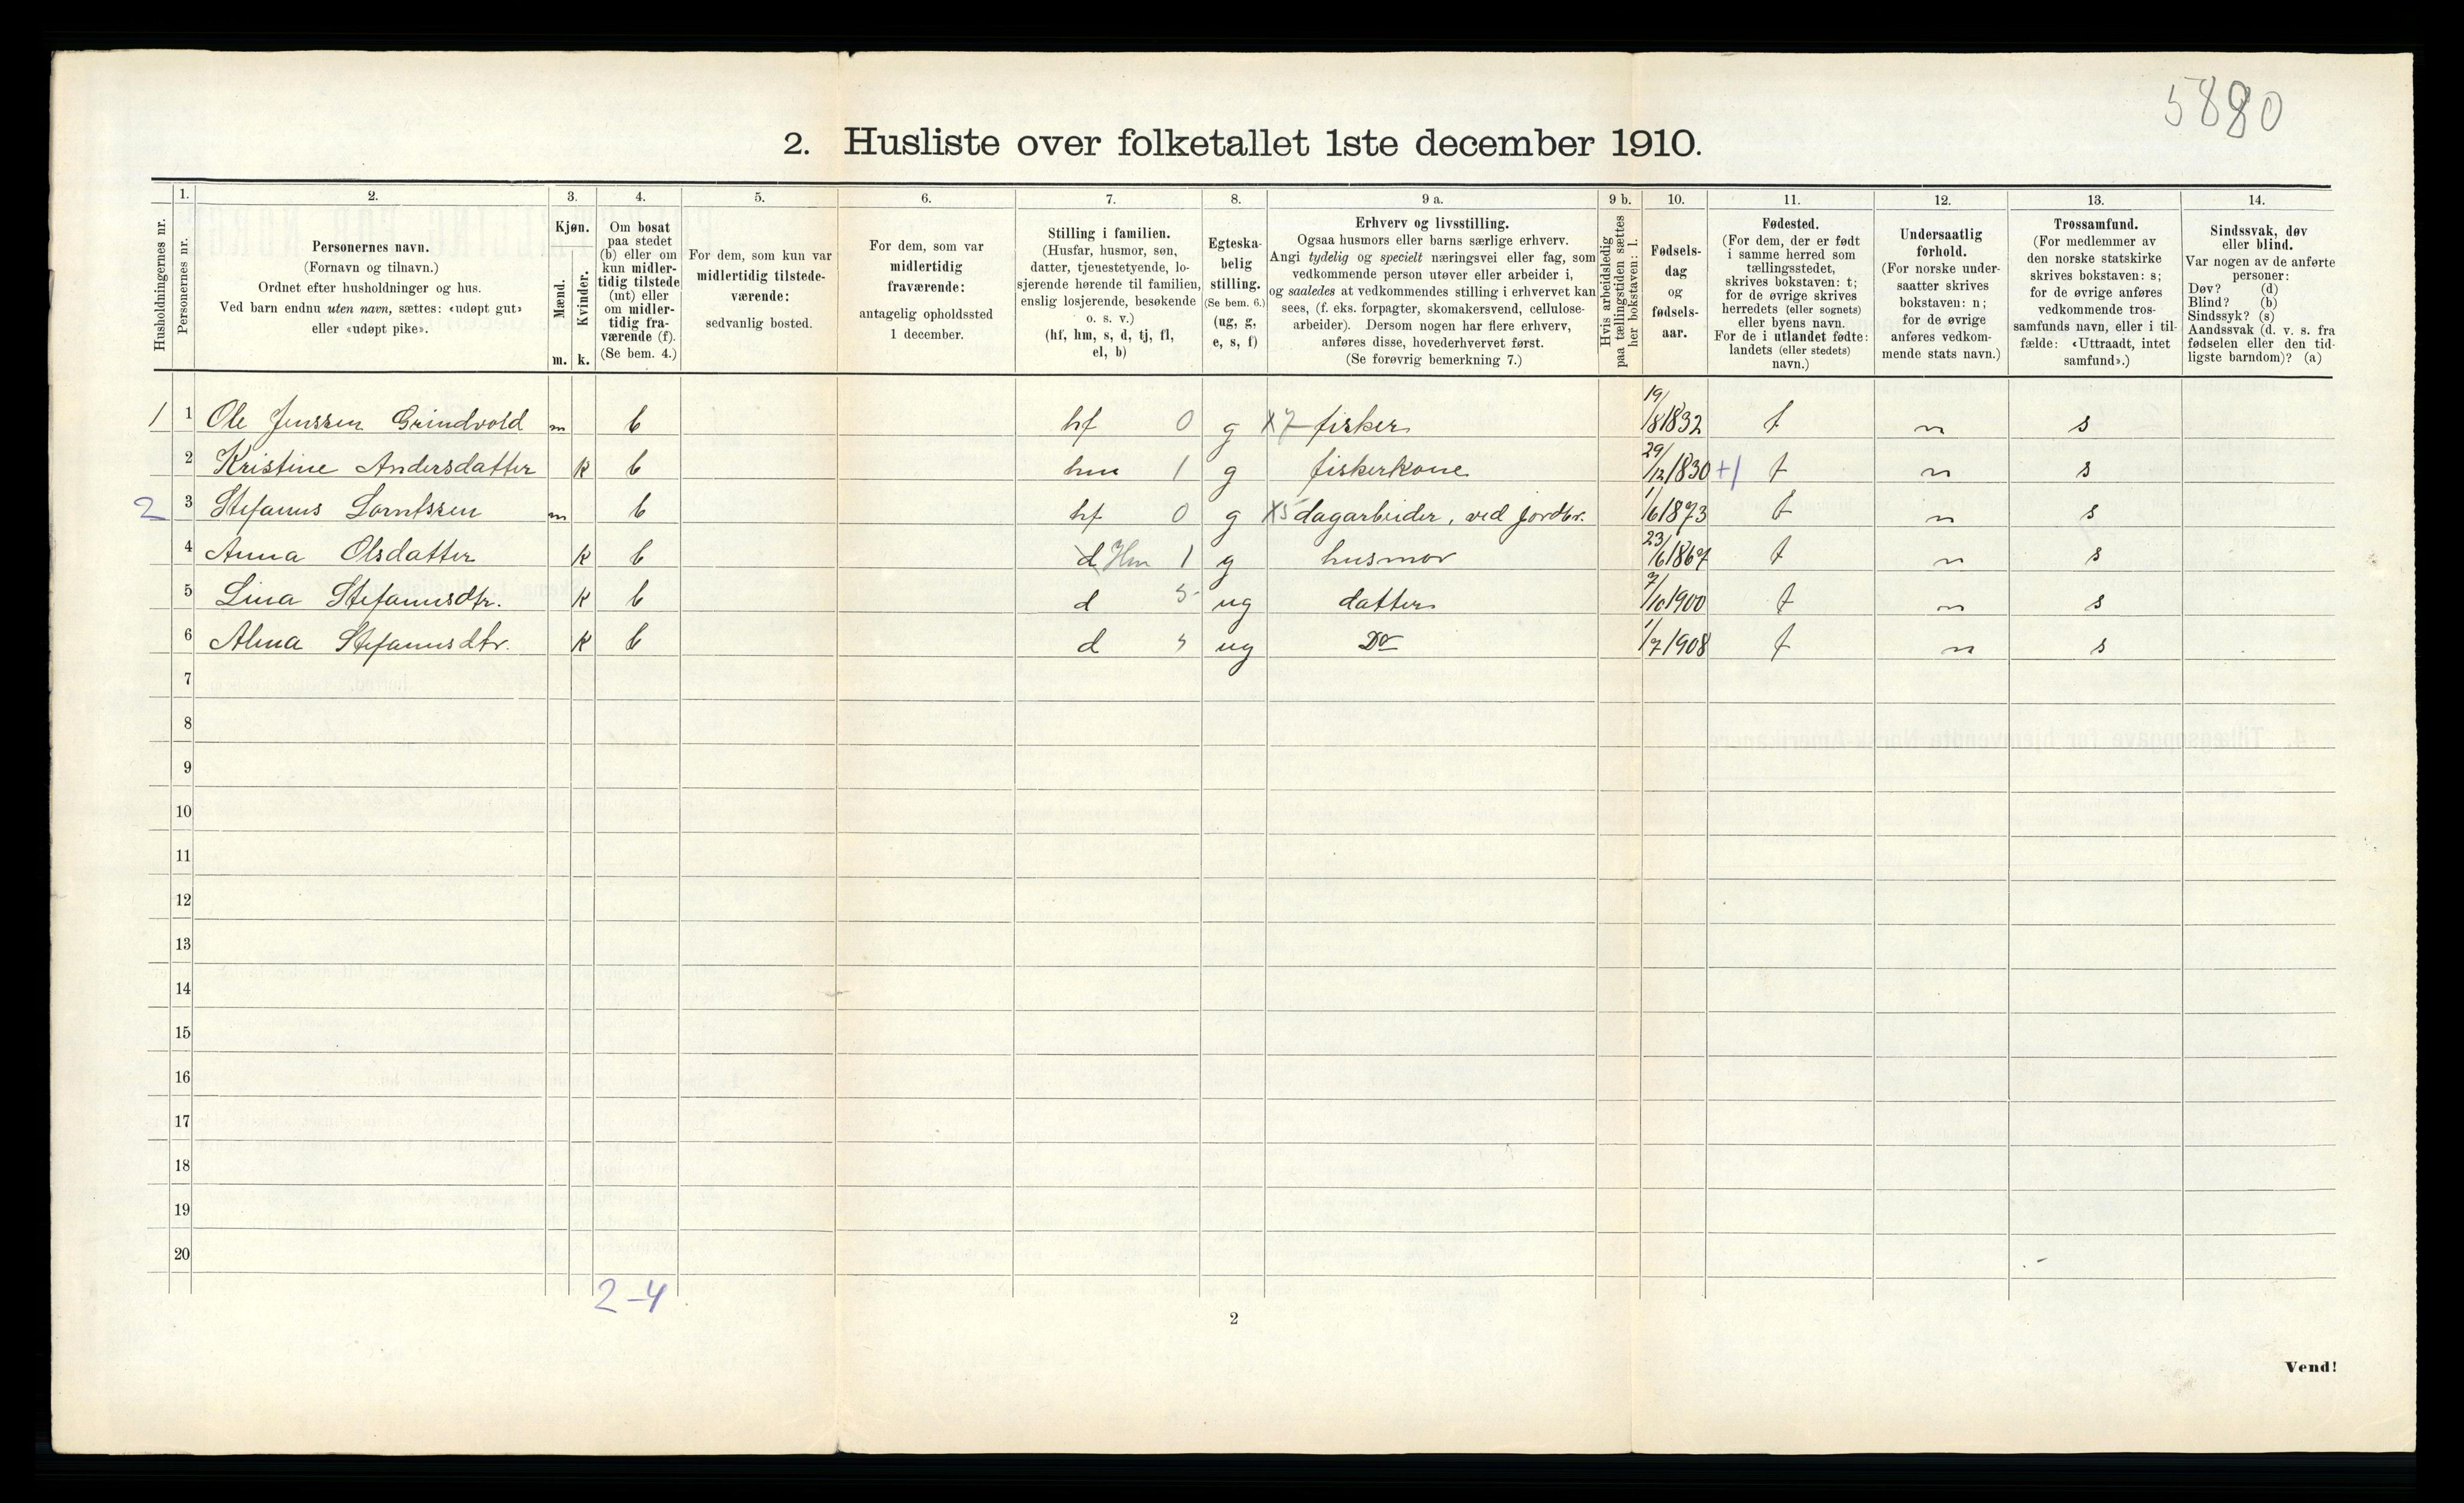 5880
2. Husliste over folketallet 1ste december 1910.
Husholdningernes nr.
1.
Personernes nr.
2.
Personernes navn.
(Fornavn og tilnavn.)
Ordnet efter husholdninger og hus.
Ved barn endnu uten navn, sættes: «udøpt gut»
eller «udøpt pike».
3.
Kjøn.
Mænd.
Kvinder.
m. k.
4.
Om bosat
paa stedet
(b) eller om
kun midler-
tidig tilstede
(mt) eller
om midler-
tidig fra-
værende (f).
(Se bem. 4.)
5.
For dem, som kun var
midlertidig tilstede-
værende:
sedvanlig bosted.
6.
For dem, som var
midlertidig
fraværende:
antagelig opholdssted
1 december.
7.
Stilling i familien.
(Husfar, husmor, søn,
datter, tjenestetyende, lo-
sjerende hørende til familien,
enslig losjerende, besøkende
o. s. v.)
(hf, hm, s, d, tj, fl,
el, b)
8.
Egteska-
belig
stilling.
(Se bem. 6.)
(ug, g,
e, s, f)
9 a.
Erhverv og livsstilling.
Ogsaa husmors eller barns særlige erhverv.
Angi tydelig og specielt næringsvei eller fag, som
vedkommende person utøver eller arbeider i,
og saaledes at vedkommendes stilling i erhvervet kan
sees, (f. eks. forpagter, skomakersvend, cellulose-
arbeider). Dersom nogen har flere erhverv,
anføres disse, hovederhvervet først.
(Se forøvrig bemerkning 7.)
9 b.
Hvis arbeidsledig
paa tællingstiden sættes
her bokstaven: l.
10.
Fødsels-
dag
og
fødsels-
aar.
11.
Fødested.
(For dem, der er født
i samme herred som
tællingsstedet,
skrives bokstaven: t;
for de øvrige skrives
herredets (eller sognets)
eller byens navn.
For de i utlandet fødte:
landets (eller stedets)
navn.)
12.
Undersaatlig
forhold.
(For norske under-
saatter skrives
bokstaven: n;
for de øvrige
anføres vedkom-
mende stats navn.)
13.
Trossamfund.
(For medlemmer av
den norske statskirke
skrives bokstaven: s;
for de øvrige anføres
vedkommende tros-
samfunds navn, eller i til-
fælde: «Uttraadt, intet
samfund».)
14.
Sindssvak, døv
eller blind.
Var nogen av de anførte
personer:
Døv? (d)
Blind? (b)
Sindssyk? (s)
Aandssvak (d. v. s. fra
fødselen eller den tid-
ligste barndom)? (a)
1 1 Ole Jenssen Grindvold m b hf 0 g X7 fisker 19/8 1832 t n s
2 Kristine Andersdatter k b hm 1 g fiskerkone 29/12 1830 +1 t n s
2 3 Stefanus Lorntssen m b hf 0 g X5 dagarbeider, ved jordbr. 1/6 1873 t n s
4 Anna Olsdatter k b d Hm 1 g husmor 23/6 1867 t n s
5 Lina Stefanusdtr. k b d 5 ug datter 7/10 1900 t n s
6 Alma Stefanusdtr. k b d 5 ug Do 1/7 1908 t n s
7
8
9
10
11
12
13
14
15
16
17
18
19
20
2-4
2
Vend!